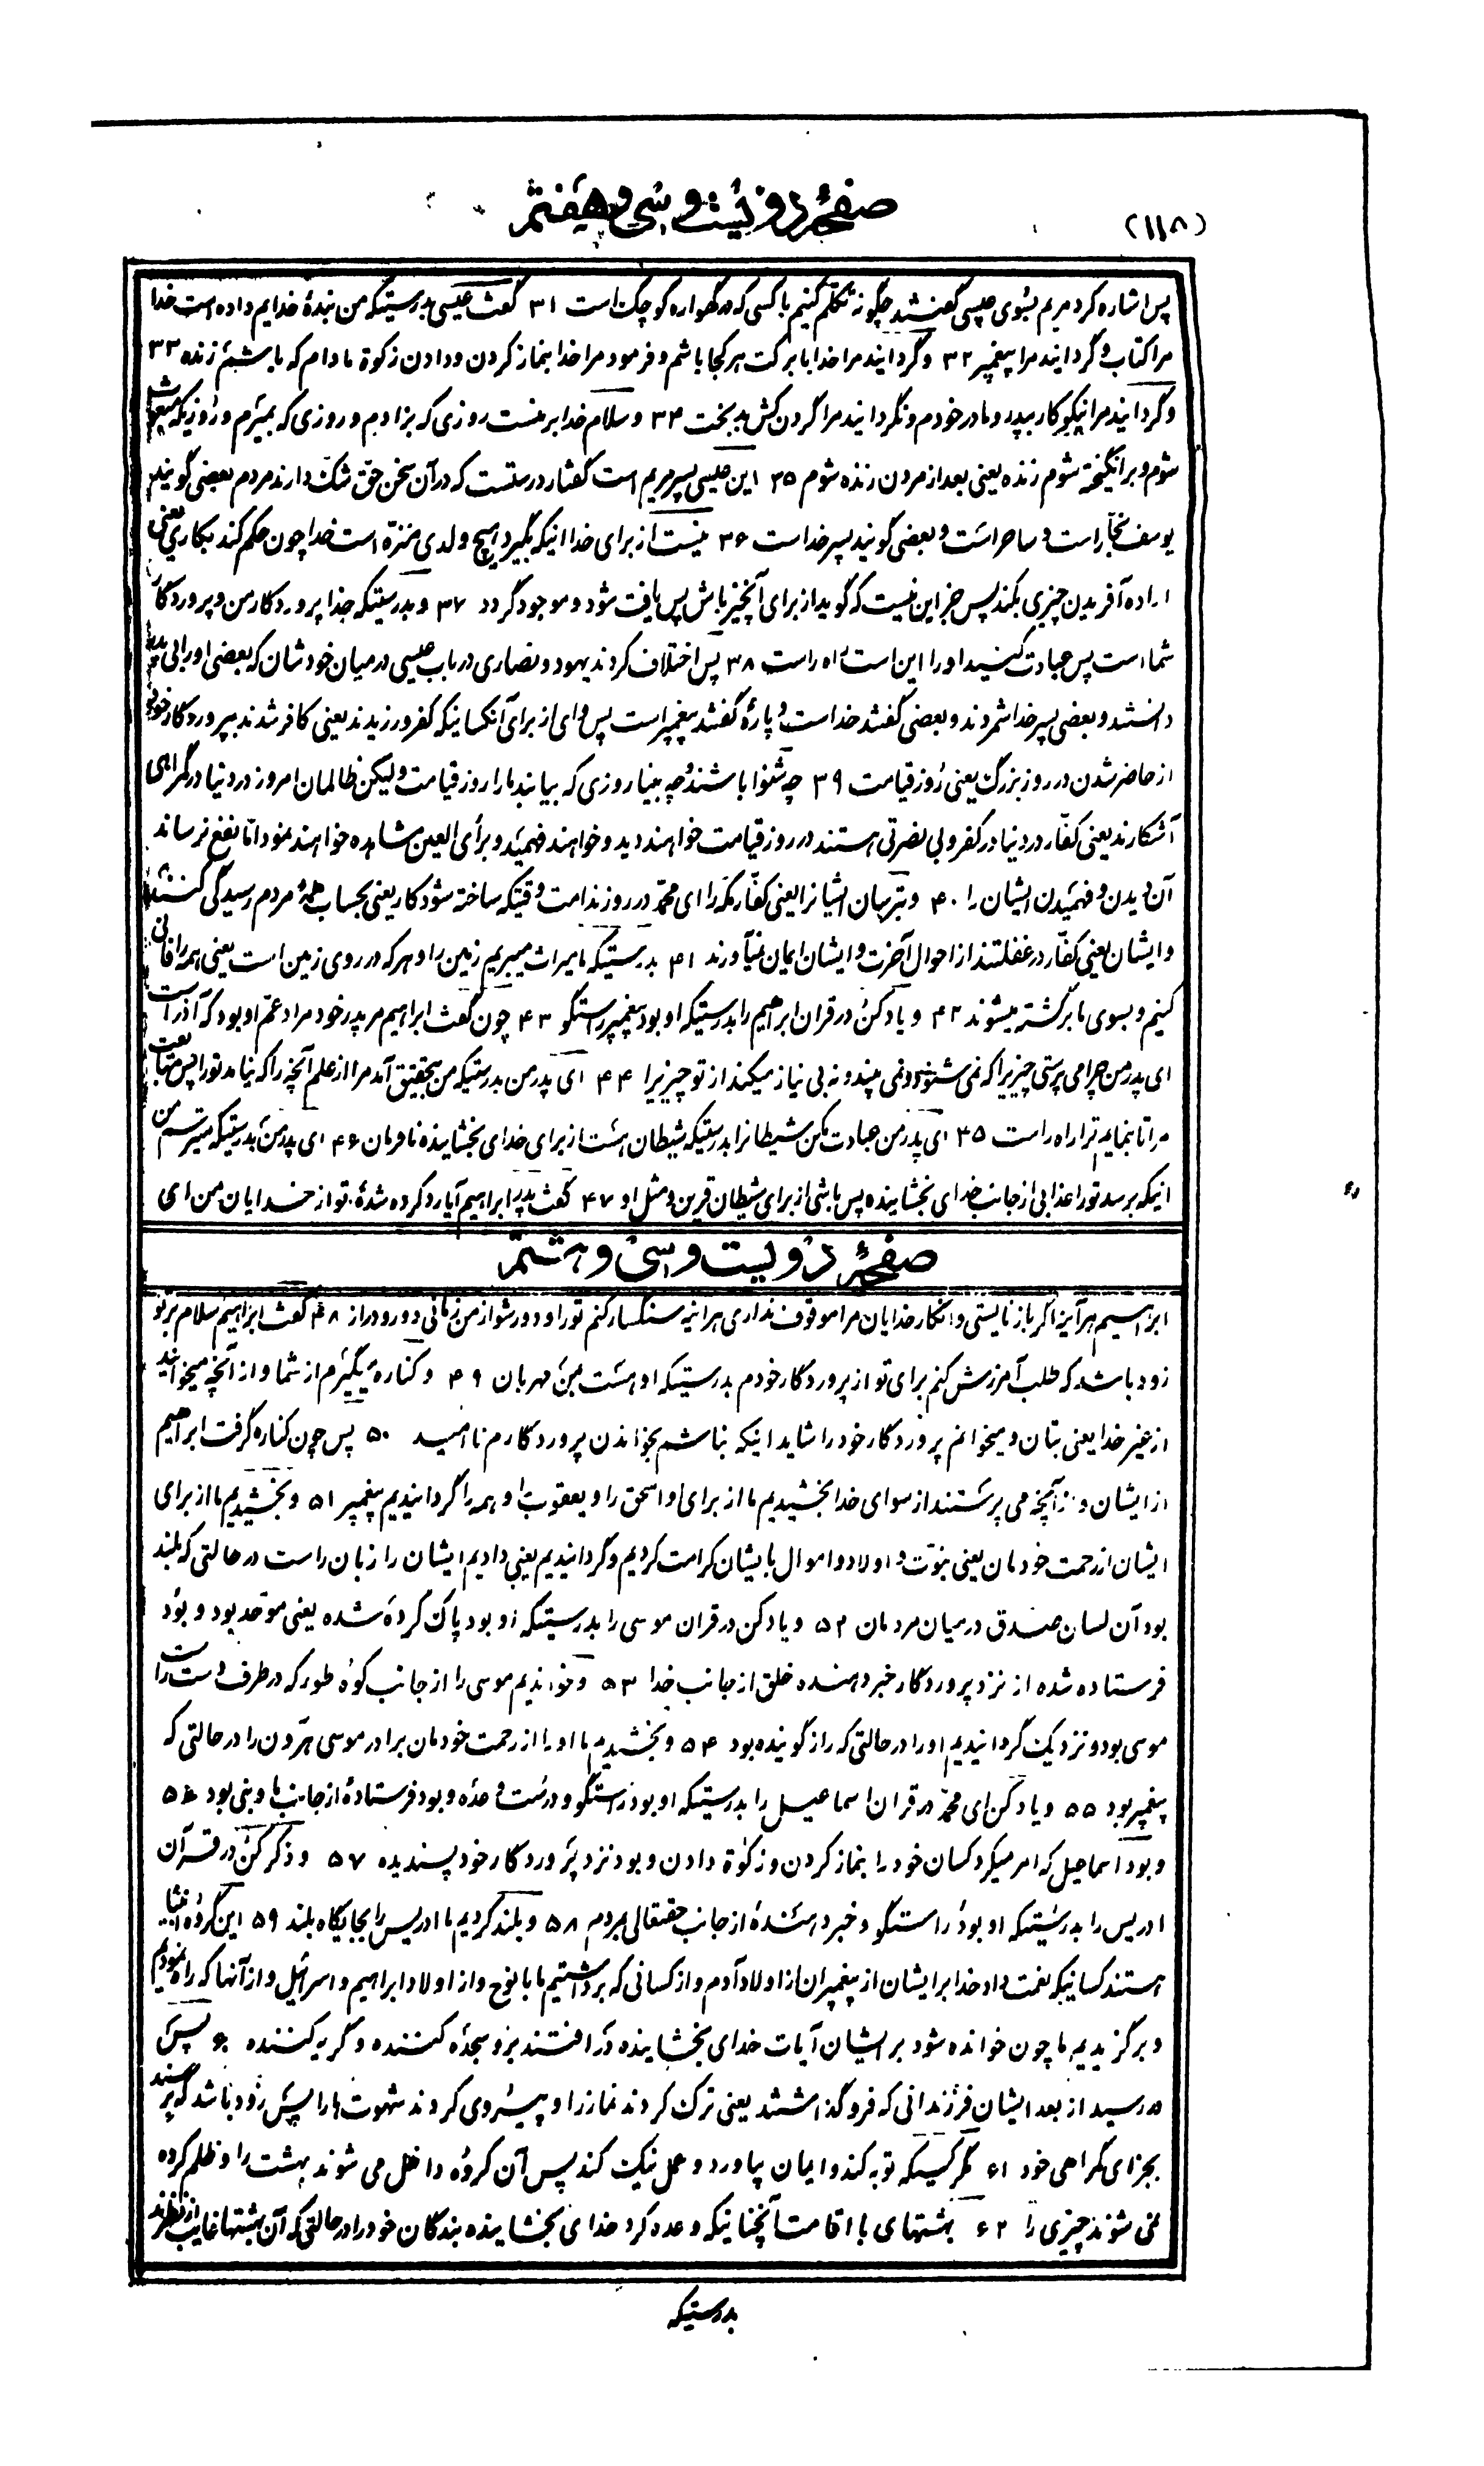 (۱۱۸)
صفحهٔ دویست و سی و هفتم
پس اشاره کرد مریم بسوی عیسی گفتند چگونه تکلم کنیم با کسی که در گهواره کوچک است ۳۱ گفت عیسی بدرستیکه من بندهٔ خدایم داده است خدا
مرا کتاب و گردانید مرا پیغمبر ۳۲ و گردانید مرا خدا با برکت هر کجا باشم و فرمود مرا خدا بنماز کردن و دادن زکوة مادام که باشم زنده ۳۳
و گردانید مرا نیکوکار بپدر و مادر خودم و نگردانید مرا گردن کش بدبخت ۳۴ و سلام خدا بر منست روزی که بزادم و روزی که بمیرم و روزیکه مبعوث
شوم و برانگیخته شوم زنده یعنی بعد از مردن زنده شوم ۳۵ این عیسی پسر مریم است گفتار درستست که در آن سخن حق شک دارند مردم بعضی گویند
یوسف نجّار است و ساحر است و بعضی گویند پسر خداست ۳۶ نیست از برای خدا اینکه بگیرد هیچ ولدی منزّه است خدا چون حکم کند بکاری یعنی
اراده آفریدن چیزی بکند پس جز این نیست که گوید از برای آنچیز باش پس یافت شود و موجود گردد ۳۷ و بدرستیکه خدا پروردگار من و پروردگار
شما است پس عبادت کنید او را این است راه راست ۳۸ پس اختلاف کردند یهود و نصاری در باب عیسی در میان خودشان که بعضی او را بی پدر
دانستند و بعضی پسر خدا شمردند و بعضی گفتند خداست و پارهٔ گفتند پیغمبر است پس وای از برای آنکسانیکه کفر ورزیدند یعنی کافر شدند بپروردگار خود
از حاضر شدن در روز بزرگ یعنی روز قیامت ۳۹ چه شنوا باشند و چه بینا روزی که بیایند ما را روز قیامت ولیکن ظالمان امروز در دنیا در گمراهی
آشکارند یعنی کفّار در دنیا در کفر و بی بصرتی هستند در روز قیامت خواهند دید و خواهند فهمید و برأی العین مشاهده خواهند نمود امّا نفع نرساند
آن دیدن و فهمیدن ایشان را ۴۰ و بترسان ایشانرا یعنی کفّار مکه را ای محمّد در روز ندامت وقتیکه ساخته شود کار یعنی بحساب همهٔ مردم رسیدگی کنند
و ایشان یعنی کفّار در غفلتند از احوال آخرت و ایشان ایمان نمیآورند ۴۱ بدرستیکه ما میراث میبریم زمین را و هر که در روی زمین است یعنی همه را فانی
کنیم و بسوی ما برگشته میشوند ۴۲ و یاد کن در قران ابراهیم را بدرستیکه او بود پیغمبر راستگو ۴۳ چون گفت ابراهیم مر پدر خود مراد عمّ او بود که آذر است
ای پدر من چرا می پرستی چیزیرا که نمی شنود و نمی بیند و نه بی نیاز میکند از تو چیزیرا ۴۴ ای پدر من بدرستیکه من بتحقیق آمد مرا از علم آنچه را که نیامد تو را پس متابعت
مرا تا بنمایم ترا راه راست ۴۵ ای پدر من عبادت مکن شیطانرا بدرستیکه شیطان هست از برای خدای بخشاینده نافرمان ۴۶ ای پدر من بدرستیکه میترسم من
اینکه برسد تو را عذابی از جانب خدای بخشاینده پس باشی از برای شیطان قرین و مثل او ۴۷ گفت پدر ابراهیم آیا رد کرده شدهٔ تو از خدایان من ای
صفحهٔ دویست و سی و هشتم
ابراهیم هرآینه اگر باز نایستی و انکار خدایان مرا موقوف نداری هرانیه سنگسار کنم تو را و دور شو از من زمانی دور و دراز ۴۸ گفت ابراهیم سلام بر تو
زود باشد که طلب آمرزش کنم برای تو از پروردگار خودم بدرستیکه او هست بمن مهربان ۴۹ و کناره میگیرم از شما و از آنچه میخوانید
از غیر خدا یعنی بتان و میخوانم پروردگار خود را شاید اینکه نباشم بخواندن پروردگارم ناامید ۵۰ پس چون کناره گرفت ابراهیم
از ایشان و از آنچه می پرستند از سوای خدا بخشیدیم ما از برای او اسحق را و یعقوب را و همه را گردانیدیم پیغمبر ۵۱ و بخشیدیم ما از برای
ایشان از رحمت خودمان یعنی نبوّت و اولاد و اموال بایشان کرامت کردیم و گردانیدیم یعنی دادیم ایشان را زبان راست در حالتی که بلند
بود آن لسان صدق در میان مردمان ۵۲ و یاد کن در قران موسی را بدرستیکه او بود پاک کرده شده یعنی موحّد بود و بود
فرستاده شده از نزد پروردگار خبر دهنده خلق از جانب خدا ۵۳ و خواندیم موسی را از جانب کوه طور که در طرف دست راست
موسی بود و نزدیک گردانیدیم او را در حالتی که رازگوینده بود ۵۴ و بخشیدیم ما او را از رحمت خودمان برادر موسی هرون را در حالتی که
پیغمبر بود ۵۵ و یاد کن ای محمّد در قران اسماعیل را بدرستیکه او بود راستگو و درست وعده و بود فرستادهٔ از جانب ما و نبی بود ۵۶
و بود اسماعیل که امر میکرد کسان خود را بنماز کردن و زکوة دادن و بود نزد پروردگار خود پسندیده ۵۷ و ذکر کن در قرآن
ادریس را بدرستیکه او بود راستگو و خبر دهندهٔ از جانب حقتعالی بمردم ۵۸ و بلند کردیم ما ادریس را بجایگاه بلند ۵۹ این گروه انبیا
هستند کسانیکه نعمت داد خدا بر ایشان از پیغمبران از اولاد آدم و از کسانی که برداشتیم ما با نوح و از اولاد ابراهیم و اسرائیل و از آنها که راه نمودیم
و برگزیدیم ما چون خوانده شود بر ایشان آیات خدای بخشاینده در افتند برو سجده کننده و گریه کننده ۶۰ پس
در رسید از بعد ایشان فرزندانی که فروگذاشتند یعنی ترک کردند نماز را و پیروی کردند شهوت ها را پس زود باشد که برسند
بجزای گمراهی خود ۶۱ مگر کسیکه توبه کند و ایمان بیاورد و عمل نیک کند پس آن گروه داخل می شوند بهشت را و ظلم کرده
نمی شوند چیزی را ۶۲ بهشتهای با اقامت آنچنانیکه وعده کرد خدای بخشاینده بندگان خود را در حالتی که آن بهشتها غایب از نظرند
بدرستیکه